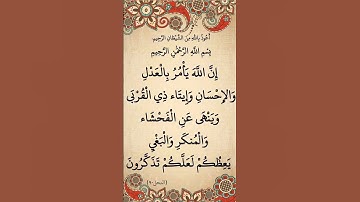 أَعُوذُ بِاللَّهِ مِنَ الشَّيْطَانِ الرَّجِيمِ
بِسْمِ اللَّهِ الرَّحْمَٰنِ الرَّحِيمِ
إِنَّ اللَّهَ يَأْمُرُ بِالْعَدْلِ
وَالإِحْسَانِ وَإِيتَاء ذِي الْقُرْبَى
وَيَنْهَى عَنِ الْفَحْشَاء
وَالْمُنكَرِ وَالْبَغْيِ
يَعِظُكُمْ لَعَلَّكُمْ تَذَكَّرُونَ
(النحل:٩٠)